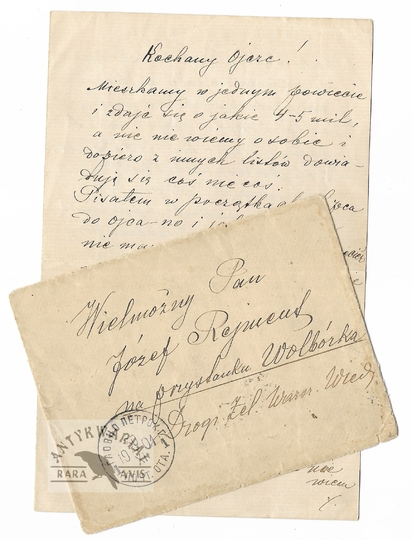 Kochany Ojcze!
Mieszkamy w jednym powiecie
i zdaje się o jakie 4-5 mil,
a nic nie wiemy o sobie i
dopiero z innych listów dowia-
duję się coś nie coś.
Pisałem w początkach
do ojca - no i
nie
Wielmożny Pan
Józef Rejment
na przystanku Wolbórka
Drogi Żel. Warsz. Wied.
ANTYKWARIAT
RARA AVIS
wiem